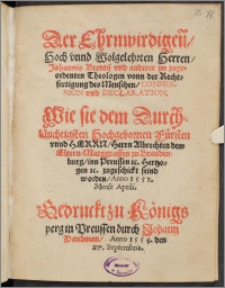 Der Ehrnwirdigen/
Hoch vnnd Wolgelehrten Herren/
Johannis Brentij vnd anderer im zuge-
ordenten Theologen vonn der Recht-
fertigung des Menschen/ CONFES-
SION vnd DECLARATION,
Wie sie dem Durch-
lauchtigsten Hochgebornen Fürsten
vnnd HERRN/ Herrn Albrechten dem
Eltern Marggraffen zu Branden-
burg/ inn Preussen ꝛc. Hertzo-
gen ꝛc. zugeschickt seind
worden/ Anno
Mense Aprili.
Gedruckt zu Königs
perg in Preussen durch Johann
Daubman/ Anno den
27. Septembris.